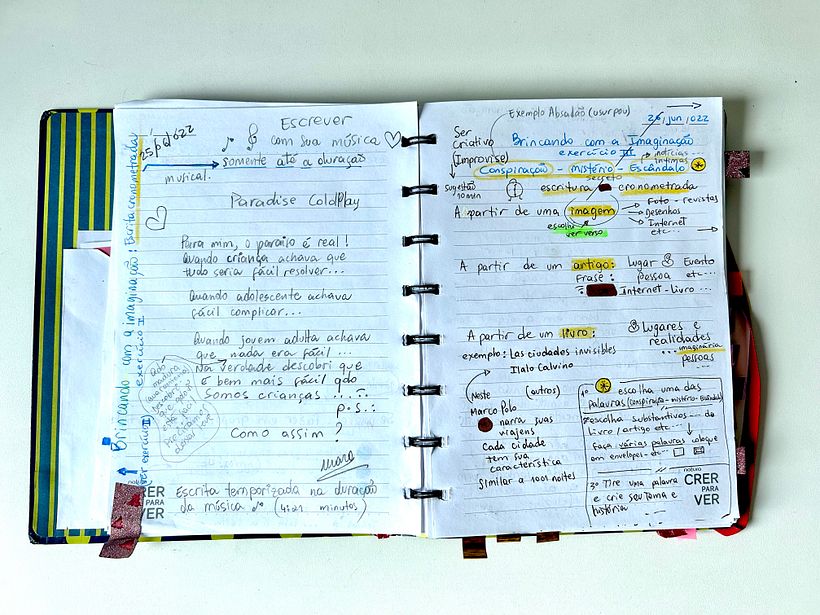 Escrever
com sua música
somente até a duração
musical.
25/jul/022
Paradise ColdPlay
Para mim, o paraíso é real!
Quando criança achava que
tudo seria fácil resolver...
Quando adolescente achava
fácil complicar...
Quando jovem adulta achava
que nada era fácil...
Na verdade descobri que
é bem mais fácil qdo
somos crianças .....
p.s.:
Como assim?
Escrita temporizada na duração
da música (4:21 minutos)
CRER
PARA
VER
Brincando com a imaginação: Escrita cronometrada
exercício II
Exemplo Absadão (usurpou)
25/jun/022
Ser
criativo
(Improvise)
Brincando com a Imaginação
exercício III
notícias
íntimas
Conspiração - mistério - Escândalo
secreto
sugestão
10 min
escritura cronometrada
A partir de uma imagem
Foto - revistas
Desenhos
Internet
etc...
escolhi
ver verso
A partir de um artigo: Lugar Evento
Frase: pessoa etc...
Internet - Livro ...
A partir de um livro:
Lugares e
realidades
... imaginária
pessoas
...
exemplo: Las ciudades invisibles
Italo Calvino
Neste (outros)
Marco Polo
narra suas
viajens
Cada cidade
tem sua
característica
Similar a 1001 noites
1º escolha uma das
palavras (conspiração-mistério-Escândalo)
2º escolha substantivos --- do
livro/artigo etc...
Faça várias palavras coloque
em envelopes - etc
3º Tire uma palavra
e crie seu tema e
história ......
natura
CRER
PARA
VER